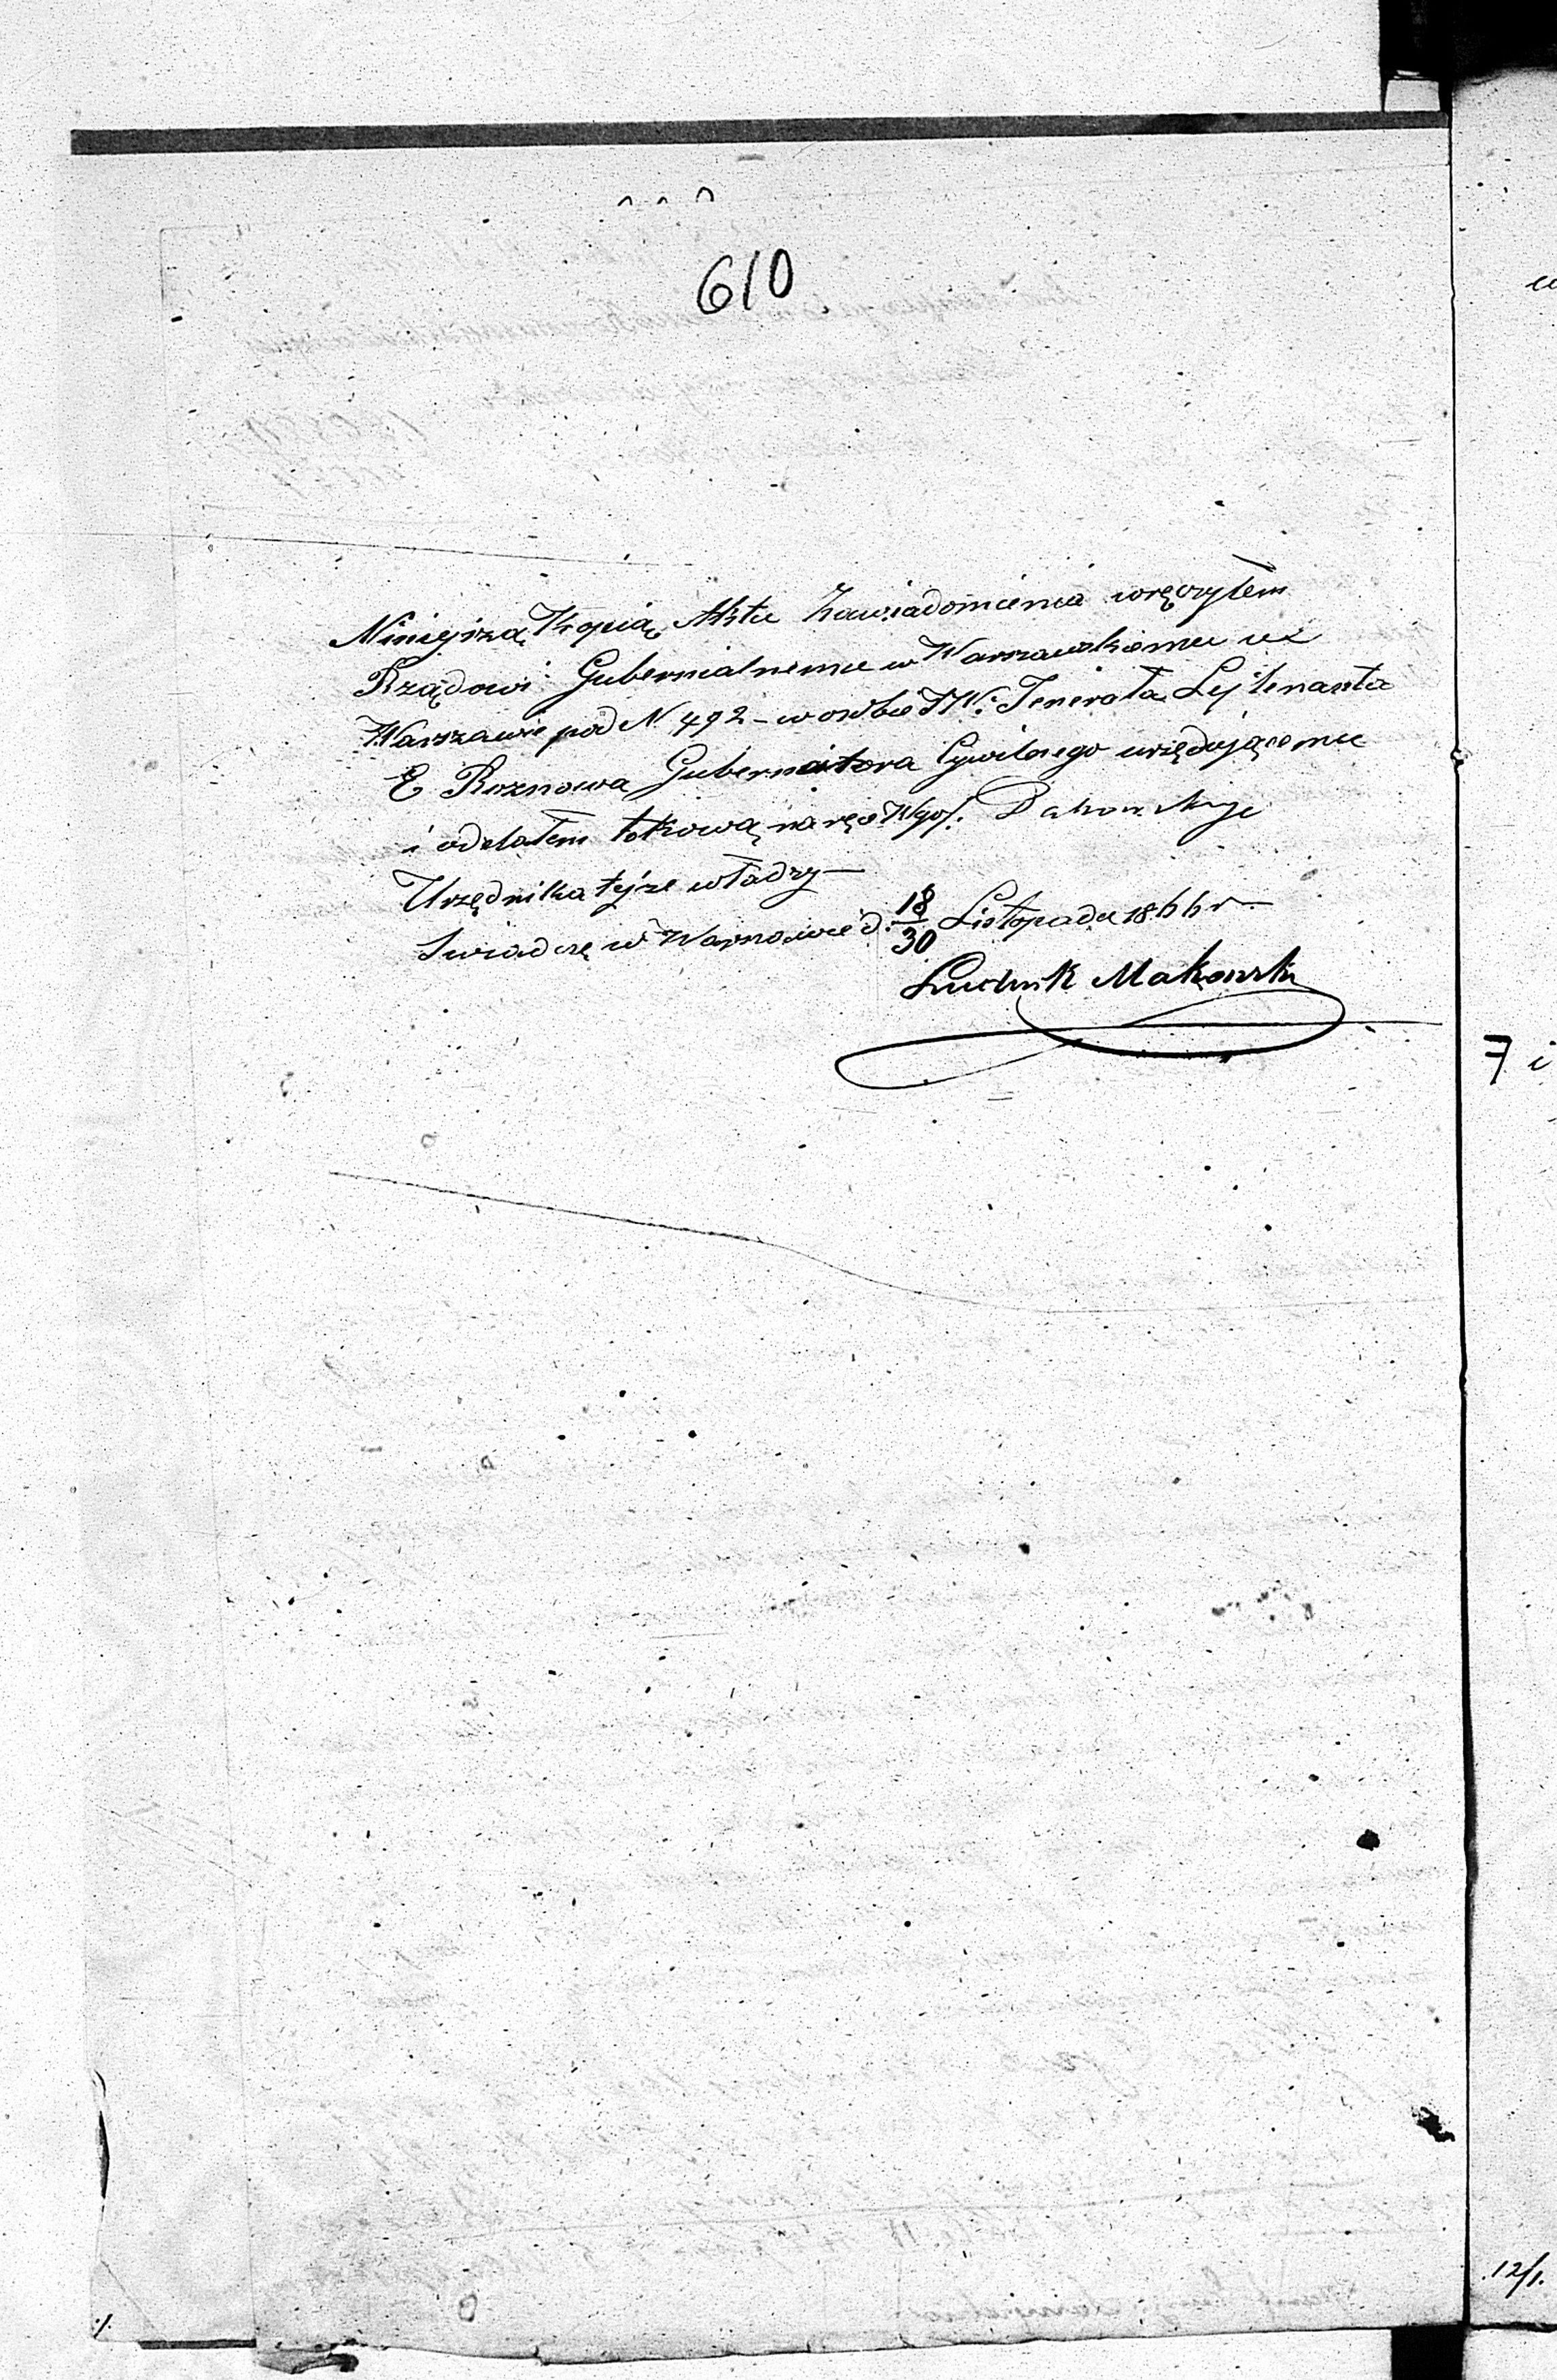 610
Niniejszą Kopią Aktu Zawiadomienia wręczyłem
Rządowi Gubernialnemu w Warszawskiemu w
Warszawie pod N. 492 – w osobie JW. Jenerała Lejtenanta
E Roznowa Gubernatora Cywilnego urzędującemu
i oddałem takową na ręce
Urzędnika tejże władzy –
Swiadczę w Warszawie d. 18/30 Listopada 1866 r –
Ludwik Makowski
7 i
12/1.